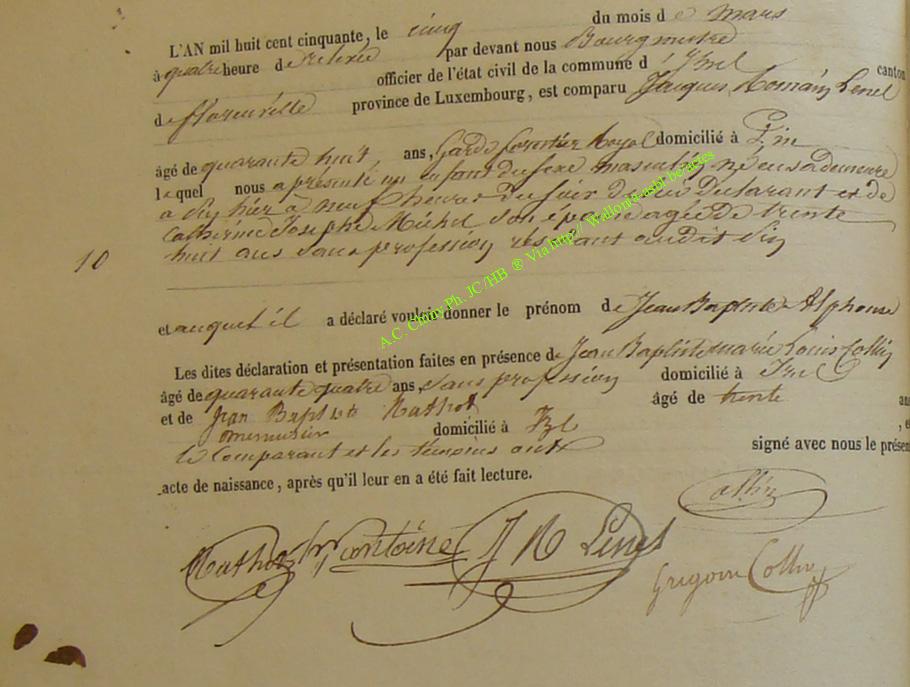 L'AN mil huit cent cinquante, le cinq du mois de mars
à quatre heure de relevée par devant nous Bourgmestre
officier de l'état civil de la commune d'Izel canton
de florenville province de Luxembourg, est comparu Jacques Romain Lenel
âgé de quarante huit, ans, Garde forestier Royal domicilié à Pin
lequel nous a présenté un enfant du sexe masculin né en sa demeure
à Pin hier à neuf heures du soir de lui Déclarant et de
Catherine Josephe Michel son épouse agée de trente
huit ans sans profession résidant audit Pin
10
et auquel il a déclaré vouloir donner le prénom de Jean Baptiste Alphonse
Les dites déclaration et présentation faites en présence de Jean Baptiste marie Louis Collin
âgé de quarante quatre ans, sans profession domicilié à Izel
et de Jean Baptiste Mathot âgé de trente ans
menuisier domicilié à Izel
le Comparant et les témoins ont signé avec nous le présent
acte de naissance, après qu'il leur en a été fait lecture.
Collin
Mathot J R Lenel
Grégoire Collin
A.C. Chiny Ph. JC/HB ® Via http:// Wallonia-asbl-be/actes